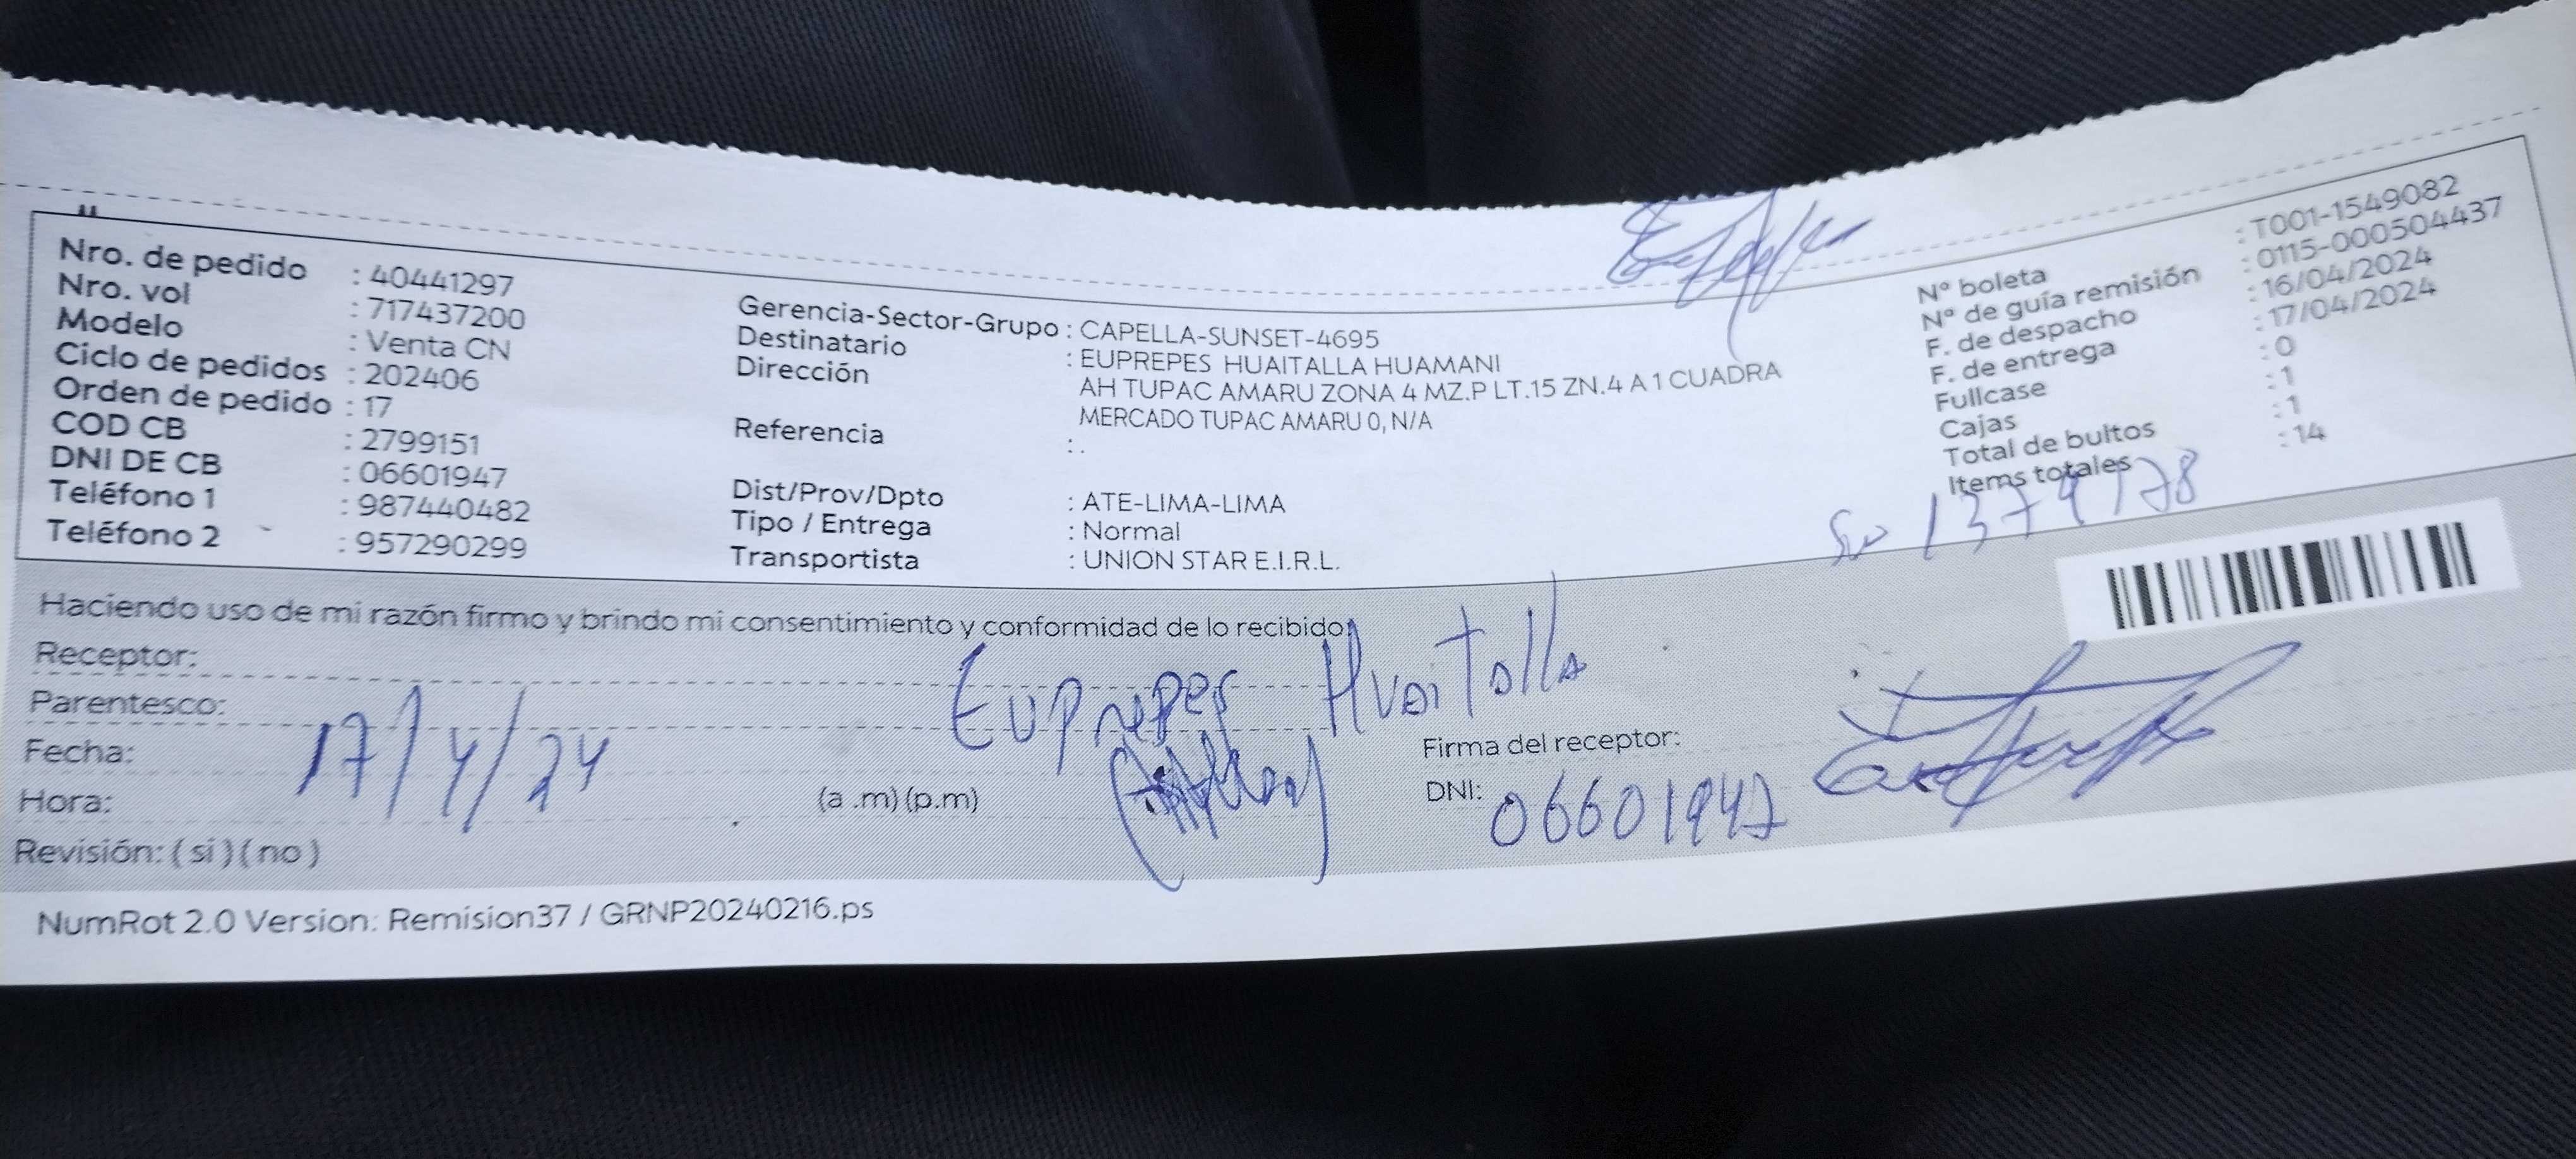 Nro. de pedido : 40441297
Nro. vol : 717437200
Modelo : Venta CN
Ciclo de pedidos : 202406
Orden de pedido : 17
COD CB : 2799151
DNI DE CB : 06601947
Teléfono 1 : 987440482
Teléfono 2 : 957290299
Gerencia-Sector-Grupo : CAPELLA-SUNSET-4695
Destinatario : EUPREPES HUAITALLA HUAMANI
Dirección AH TUPAC AMARU ZONA 4 MZ.P LT.15 ZN.4 A 1 CUADRA
MERCADO TUPAC AMARU 0, N/A
Referencia : .
Dist/Prov/Dpto : ATE-LIMA-LIMA
Tipo / Entrega : Normal
Transportista : UNION STAR E.I.R.L.
N° boleta : T001-1549082
N° de guía remisión : 0115-000504437
F. de despacho : 16/04/2024
F. de entrega : 17/04/2024
Fullcase : 0
Cajas : 1
Total de bultos : 1
Items totales : 14
Haciendo uso de mi razón firmo y brindo mi consentimiento y conformidad de lo recibido:
Receptor: Euprepes Huaitalla
Parentesco:
Fecha: 17/4/24
Hora: (a .m) (p.m)
Revisión: ( sí ) ( no )
Firma del receptor:
DNI: 06601947
NumRot 2.0 Version: Remision37 / GRNP20240216.ps